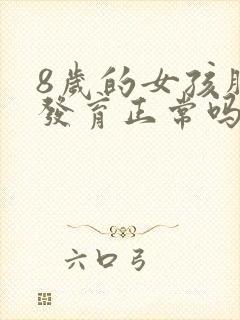 8歲的女孩
發育正常吗
六口弓